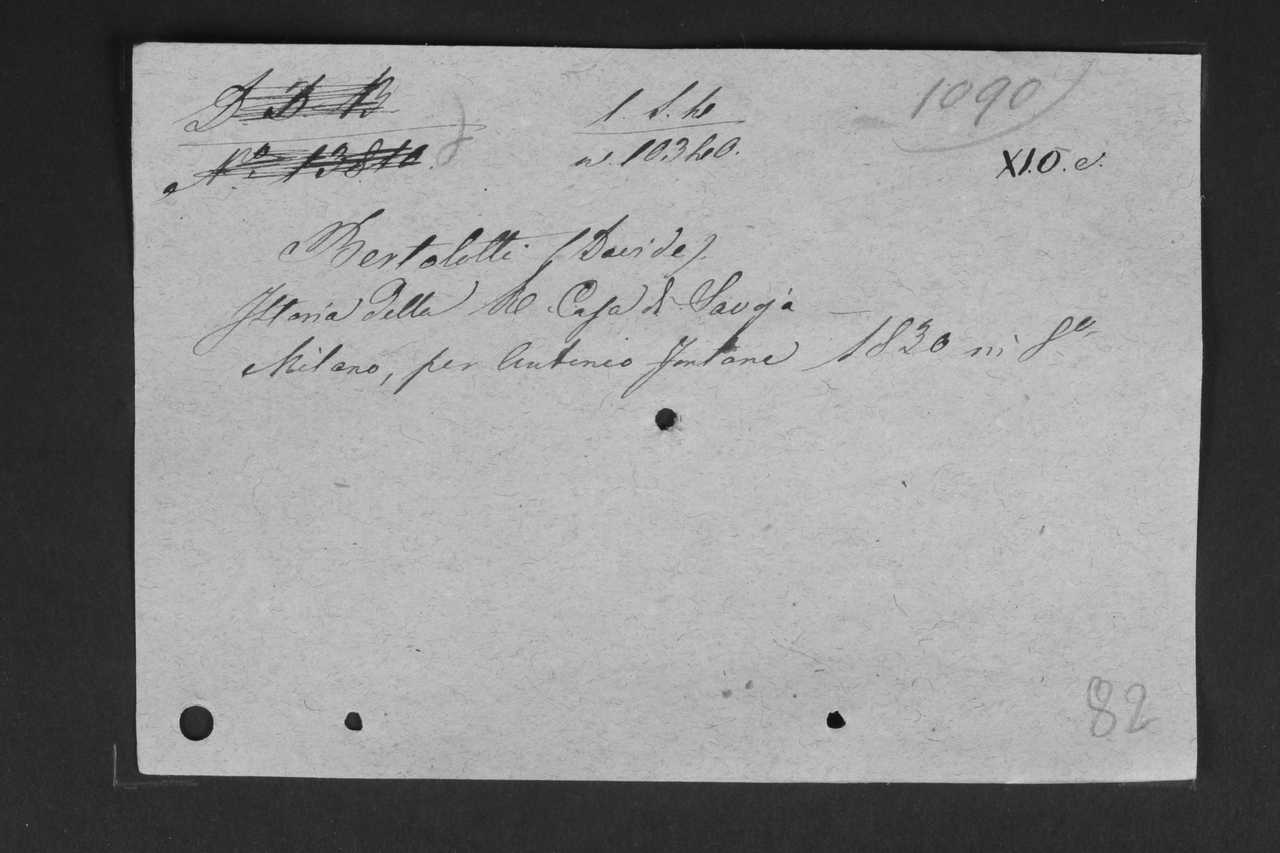 D. D. B
No. 13810.
1. S. h
n. 10340.
1090
XI.O.c.
Bertolotti (Davide).
Istoria della R. Casa di Savoja
Milano, per Antonio Fontane 1830 in 8o
82